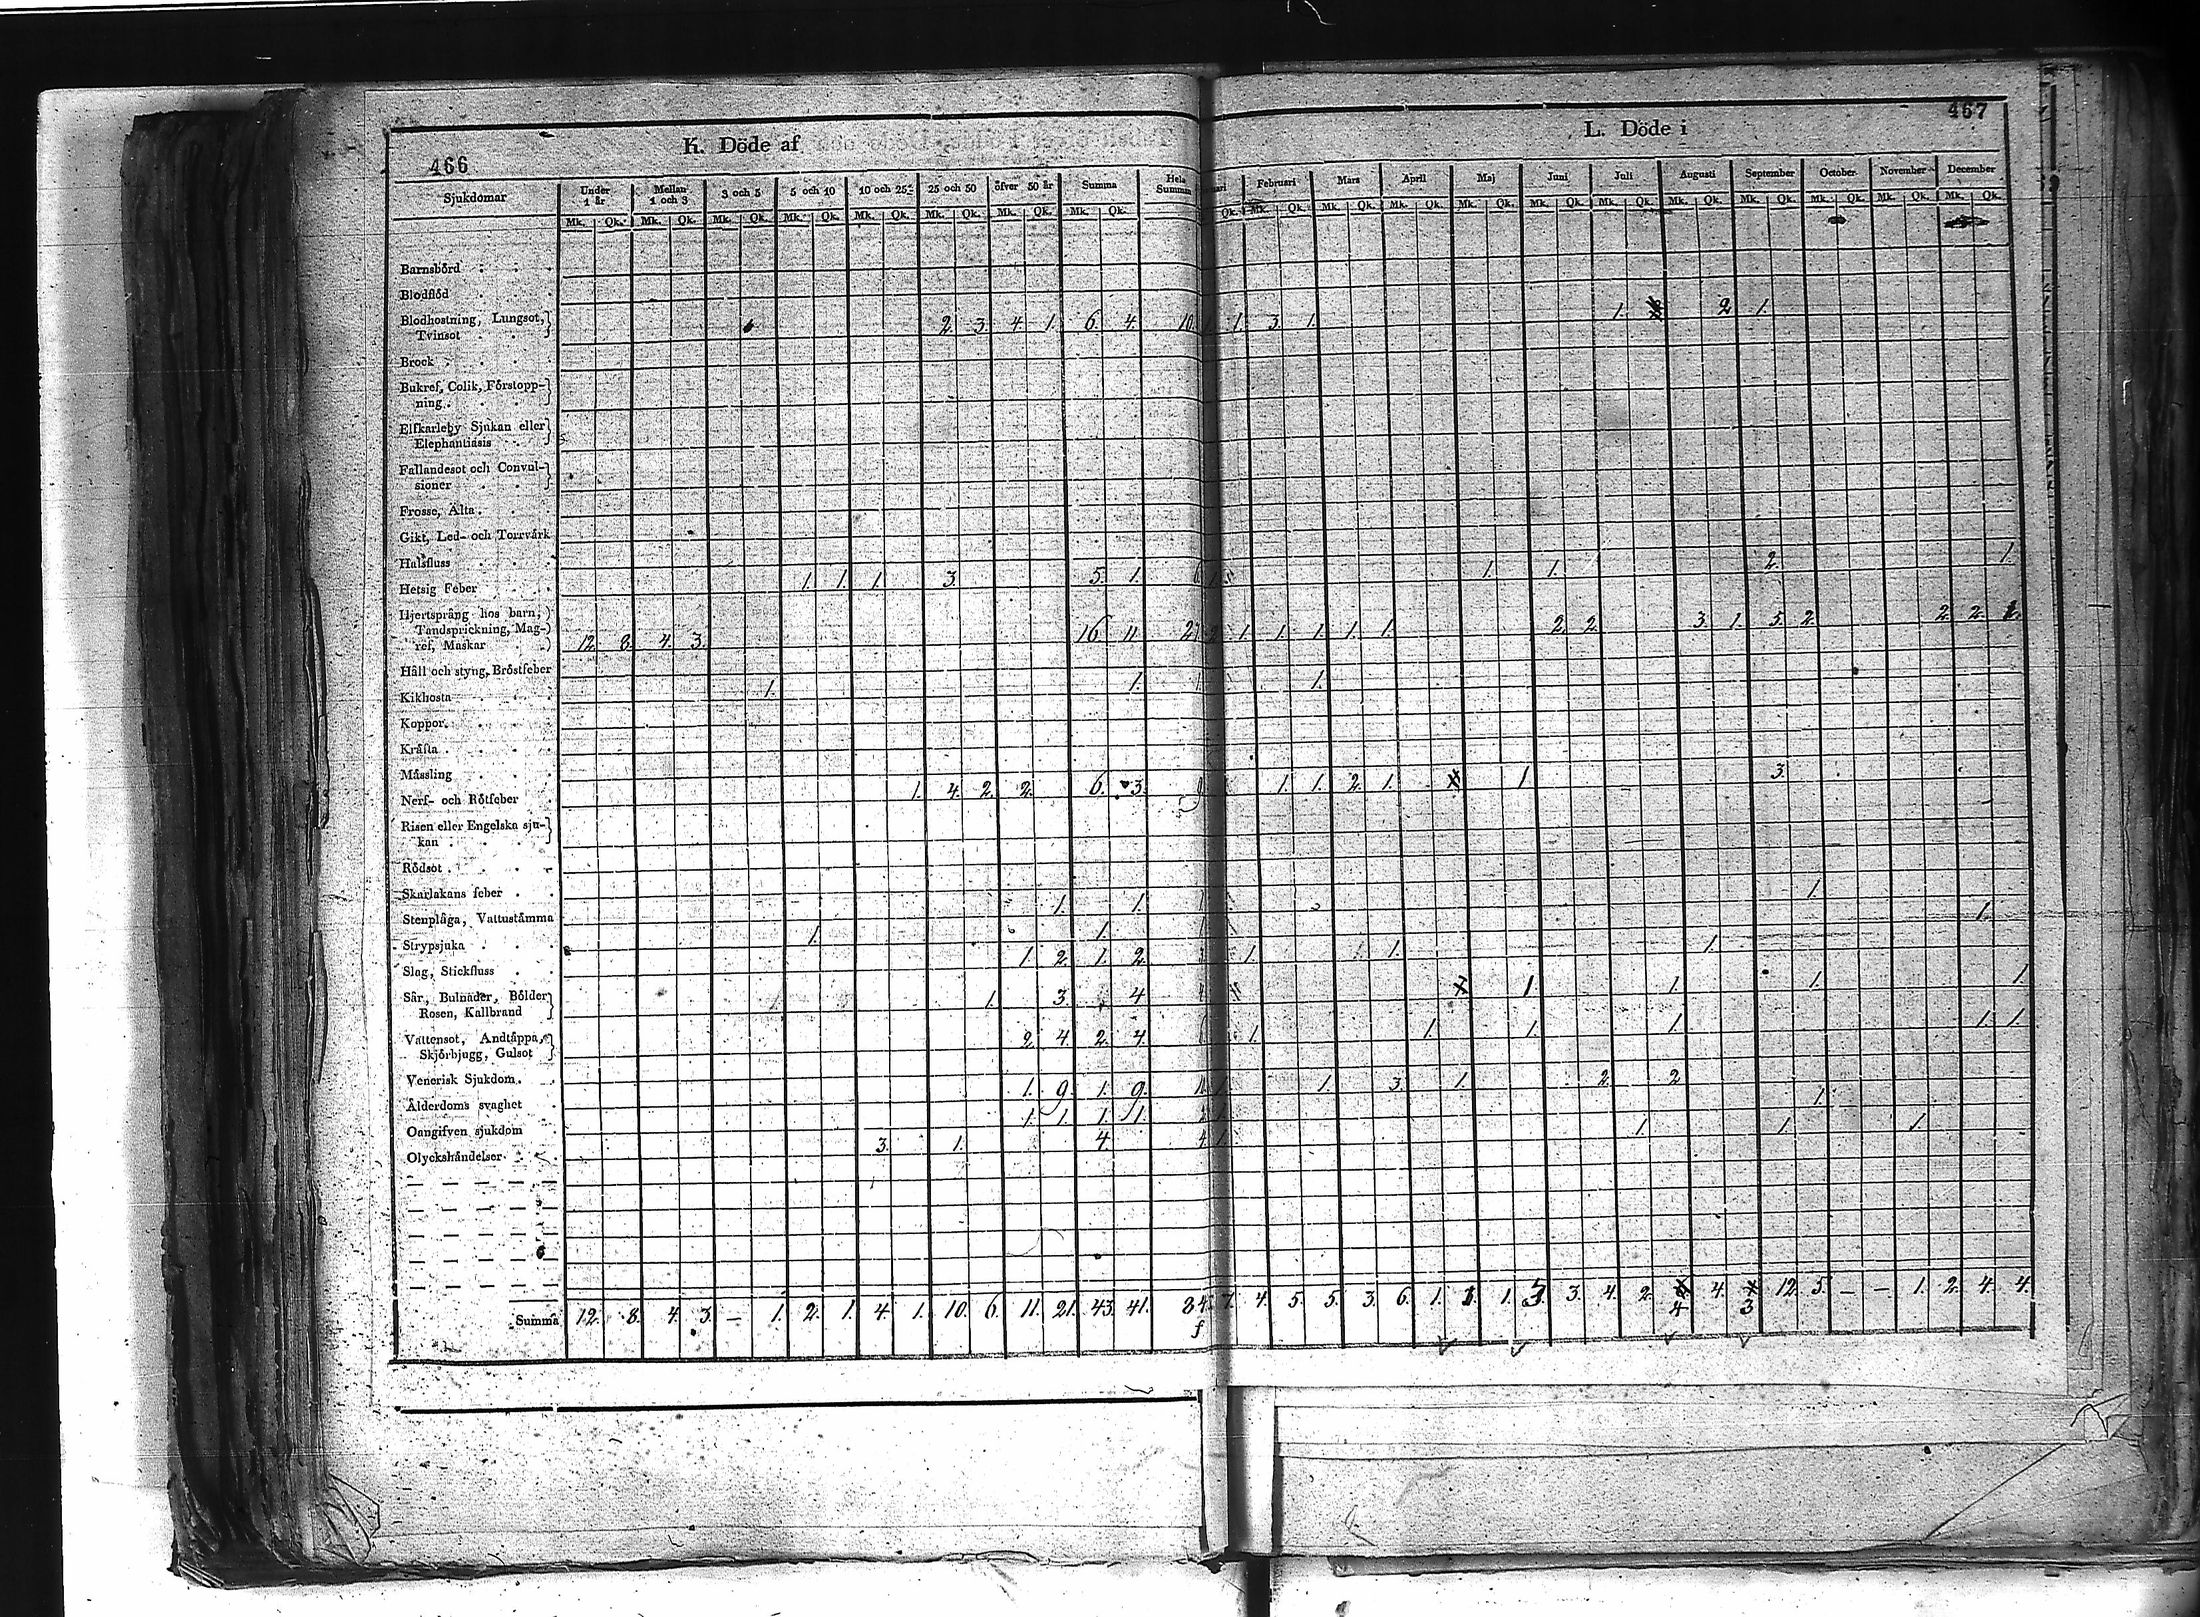 466
K. Döde af
L. Döde i
467
Sjukdomar
Under 1 år
Mellan 1 och 3
3 och 5
5 och 10
10 och 25
25 och 50
öfver 50 år
Summa
Hela Summan
Februari
Mars
April
Maj
Juni
Juli
Augusti
September
October
November
December
Mk. Qk. Mk. Qk. Mk. Qk. Mk. Qk. Mk. Qk. Mk. Qk. Mk. Qk. Mk. Qk.
Qk. Mk. Qk. Mk. Qk. Mk. Qk. Mk. Qk. Mk. Qk. Mk. Qk. Mk. Qk. Mk. Qk. Mk. Qk. Mk. Qk. Mk. Qk.
Barnsbörd
Blodflöd
Blodhostning, Lungsot,
Tvinsot 2. 3. 4. 1. 6. 4. 10. 1. 3. 1. 1. 2. 1.
Brock
Bukref, Colik, Förstopp-
ning
Elfkarleby Sjukan eller
Elephantiasis
Fallandesot och Convul-
sioner
Frosse, Älta
Gikt, Led- och Torrvärk
Halsfluss
Hetsig Feber 1. 1. 1. 3. 5. 1. 6. 1. 1. 1. 2. 1.
Hjertsprång hos barn,
Tandsprickning, Mag-
ref, Maskar 12. 8. 4. 3. 16. 11. 27. 1. 1. 1. 1. 1. 2. 2. 3. 1. 5. 2. 2. 2.
Håll och styng, Bröstfeber
Kikhosta 1. 1. 1. 1.
Koppor
Kräfta
Mässling
Nerf- och Rötfeber 1. 4. 2. 2. 6. 3. 9 1. 1. 2. 1. 1. 3.
Risen eller Engelska sju-
kan
Rödsot
Skarlakans feber
Stenplåga, Vattustämma 1. 1. 1 1.
Strypsjuka 1. 1. 1 1.
Slag, Stickfluss 1. 2. 1. 2. 3 1. 1. 1. 1.
Sår, Bulnader, Bölder
Rosen, Kallbrand 1. 3. 4 4 1 1. 1. 1.
Vattensot, Andtäppa,
Skjörbjugg, Gulsot 2. 4. 2. 4. 6 1. 1. 1. 1. 1. 1.
Venerisk Sjukdom
Ålderdoms svaghet 1. 9. 1. 9. 10 1. 1. 3. 1. 2. 2 1.
Oangifven sjukdom 1. 1. 1. 1. 2 1. 1. 1. 1.
Olyckshändelser 3. 1. 4 4 1.
Summa 12. 8. 4. 3. — 1. 2. 1. 4. 1. 10. 6. 11. 21. 43. 41. 84. 7. 4. 5. 5. 3. 6. 1. 1. 1. 3. 3. 4. 2. 4 4. 3 12. 5. — — 1. 2. 4. 4.